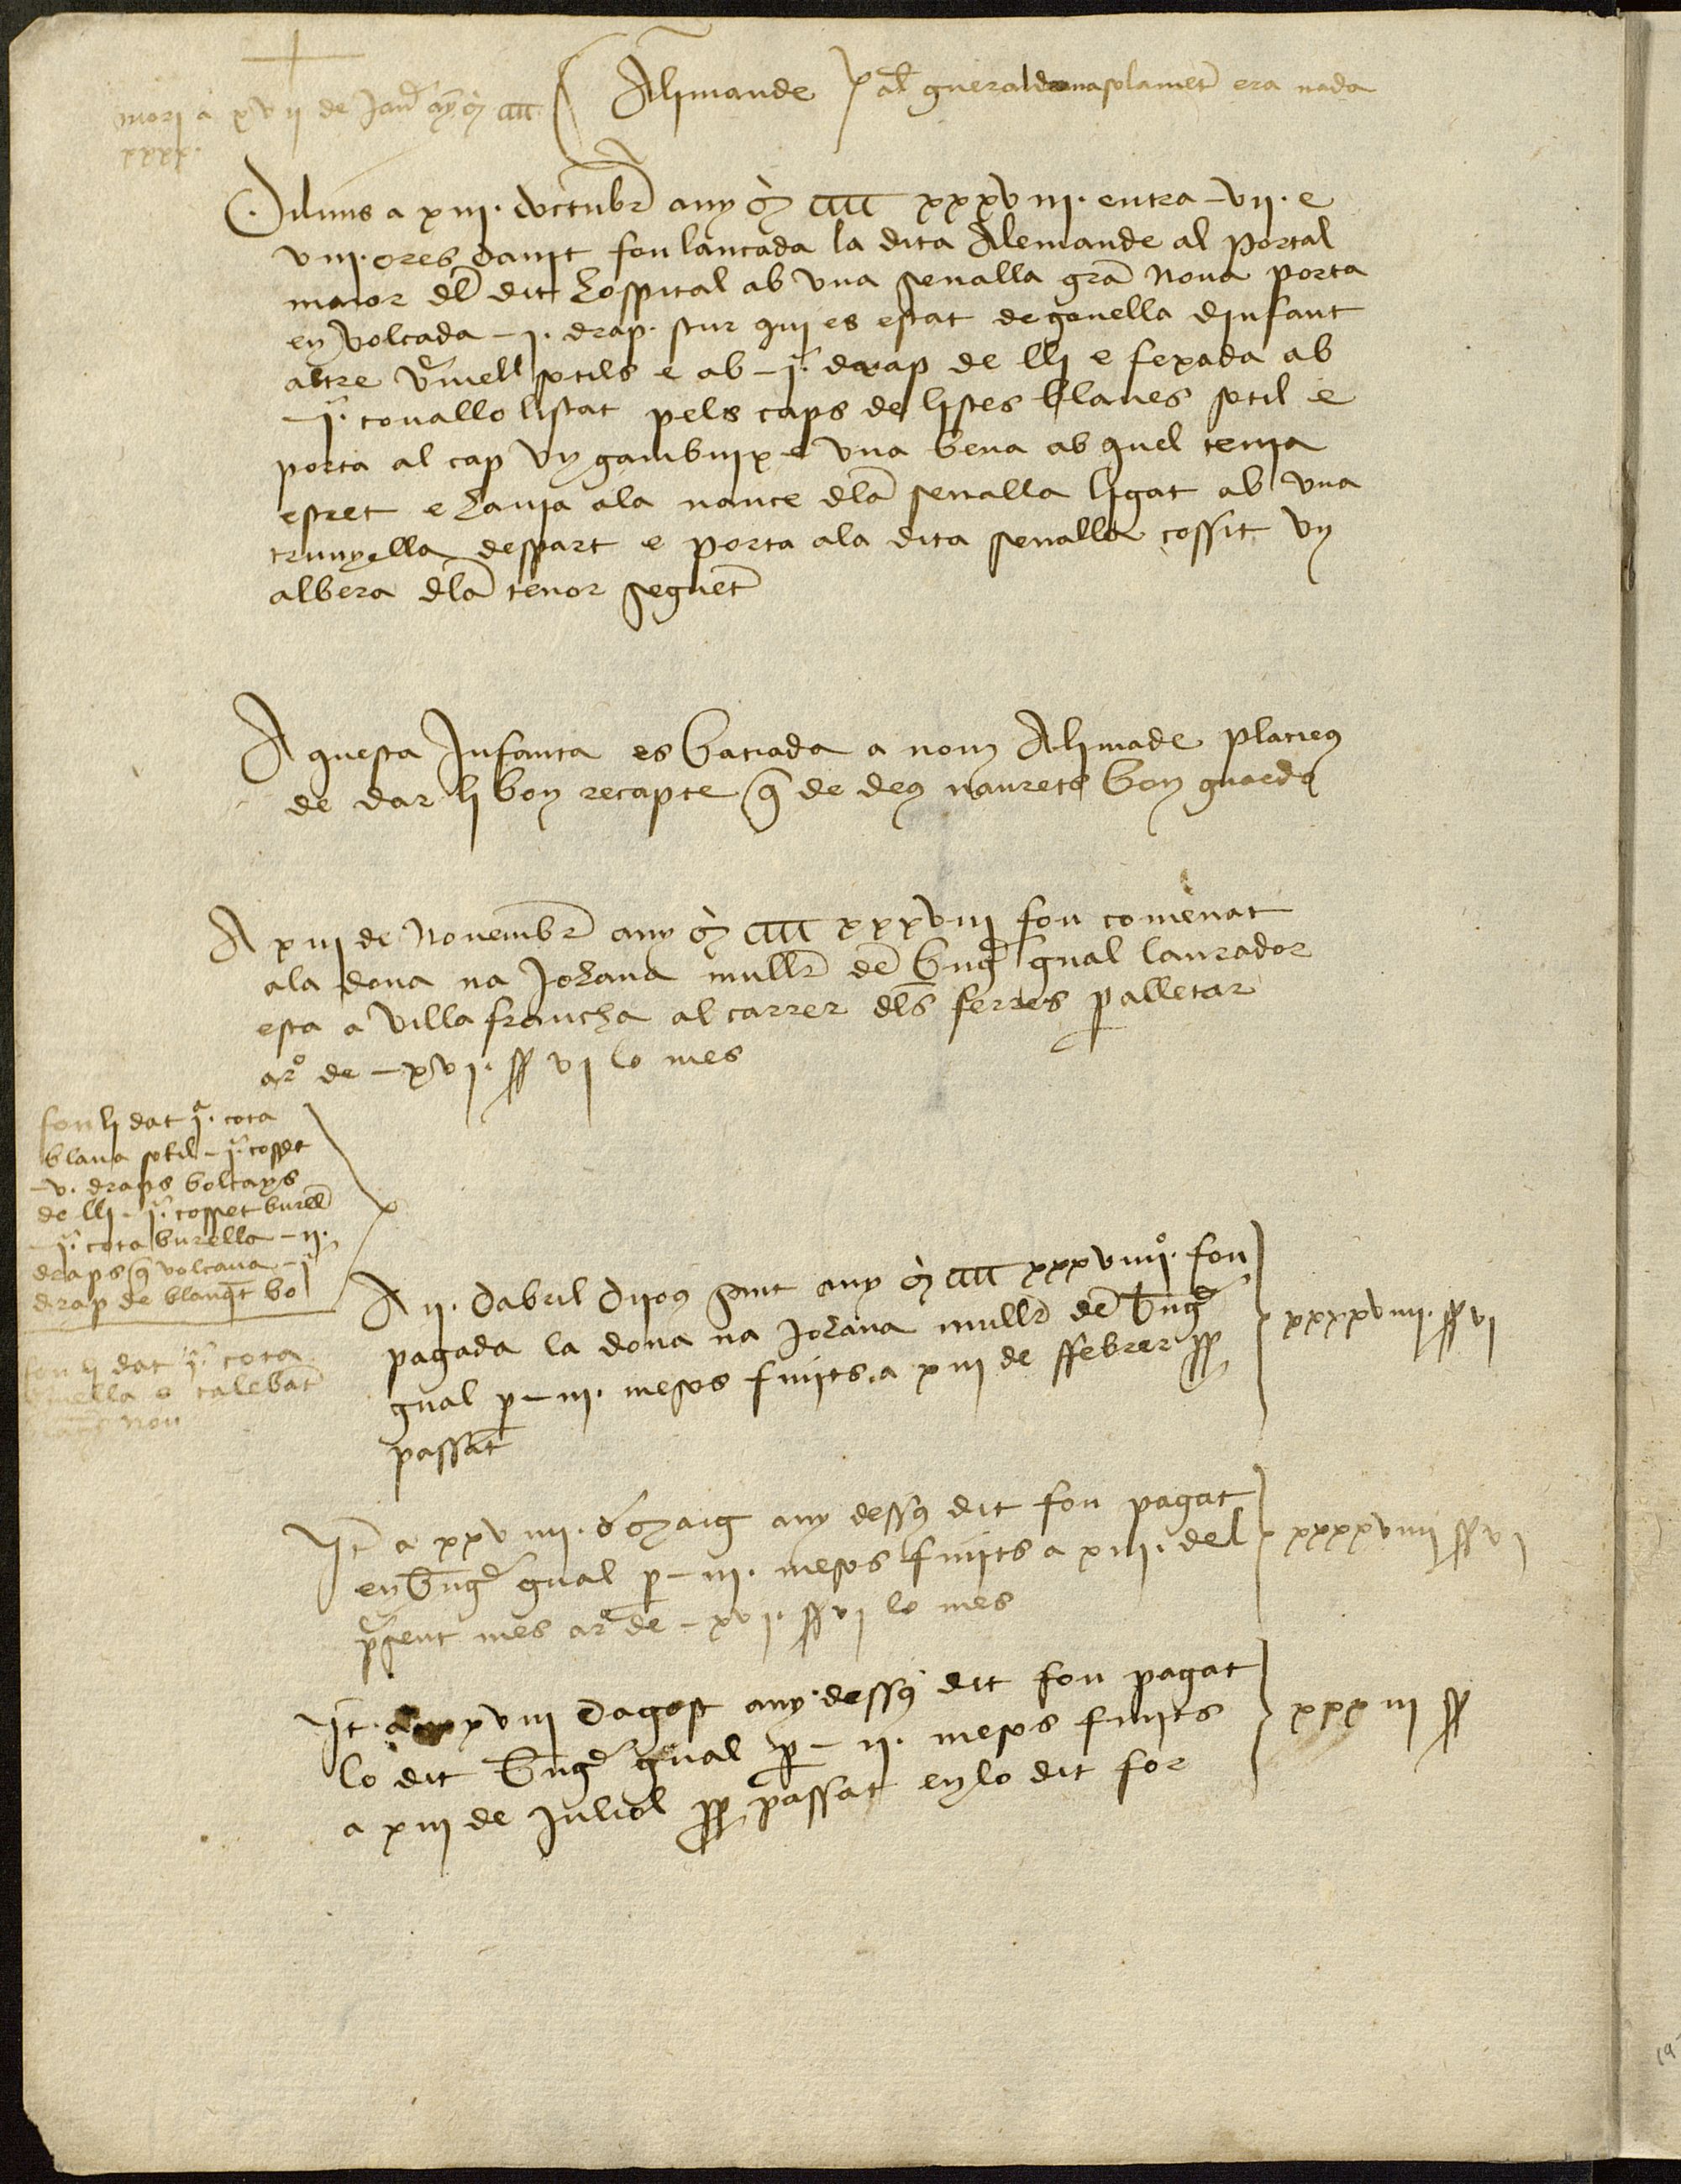 mori a xvii de Jan̄ any M cccc
xxxx.
Alimande
al gnera donasolamet̄ era nada
Diluns a xiii. doctubr̄ any M cccc xxxviii. entra vii. e
viii. ores danit fon lancada la dita Alemande al portal
maior dl̄ dit hospital ab vna senalla gra͞ noua porta
en volcada i. drap. scur qui es estat de gonella dinfant
altre v̄mell sotils e ab i. drap de lli e fexada ab
i. touallo listat pels caps de listes blaues sotil e
porta al cap vn gambuix e vna bena ab quel tenia
estret e hauia ala nance dla͞ senalla ligat ab vna
trunyella despart e porta ala dita senalla cossit vn
albera dla͞ tenor seguet̄
Aquesta Infanta es batiada a nom Alimade placieus
de dar li bon recapte q̄ de deus naurets bon guardo
A xiii de Nouembr̄ any M cccc xxxviii fon comēnat
ala dona na Johana mullr̄ den̄ bn̄g gual laurador
esta a villa francha al carrer dls̄ ferres p alletar
a rº de xvi. ss vi lo mes
fon li dat iª. cota
blaua sotil i. cosset
v. draps bolcays
de lli iª. cosset burell
iª. cota burella ii.
draps q̄ volcaua i
drap de blanq̄t bo
fon li dat iª. cota
v̄mella e calebat̄
nou
A ii. dabril dijous sant any M cccc xxxviiiiº. fon
pagada la dona na Johana mullr̄ den̄ bn̄g
gual p iii. mesos finits a xiii de ffebrer pp
passat̄
xxxxviiii. ss vi
It̄ a xxviiii. de Maig any dessus dit fon pagat
en bn̄g gual p iii. mesos finits a xiii. del
p̄sent mes a rº de xvi. ss vi lo mes
xxxxviiii ss vi
It̄. a xxviii dagost any dessus dit fon pagat
lo dit bn̄g gual p ii. mesos finits
a xiii de Juliol pp passat en lo dit for
xxxiii ss